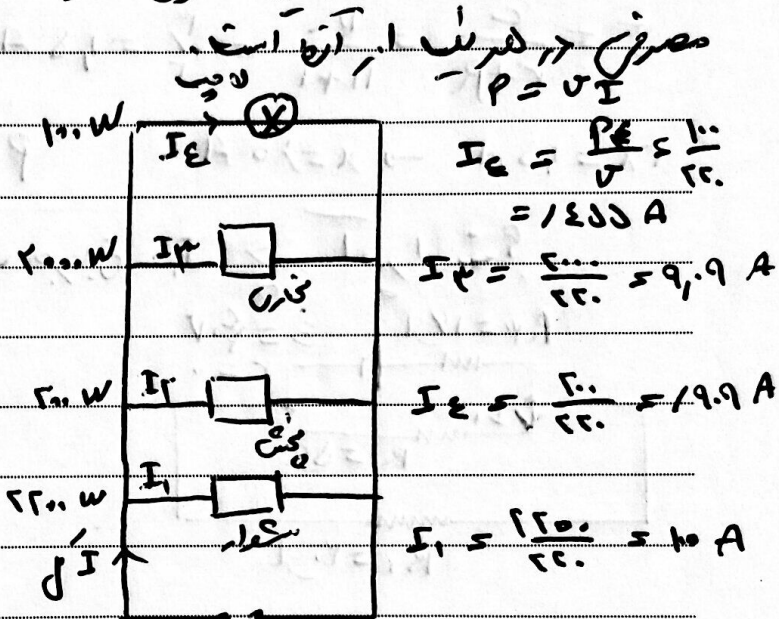 مصرفی در هر یک از آنها است.
P = VI
لامپ
۱۰۰ W
I۴
I۴ = P۴/V = ۱۰۰/۲۲۰
= ۰/۴۵۵ A
۲۰۰۰ W I۳
بخاری
I۳ = ۲۰۰۰/۲۲۰ = ۹,۰۹ A
۲۰۰ W I۲
پخش
I۴ = ۲۰۰/۲۲۰ = ۰/۹۰۹ A
۲۲۰۰ W I۱
سشوار
I۱ = ۲۲۰۰/۲۲۰ = ۱۰ A
I کل